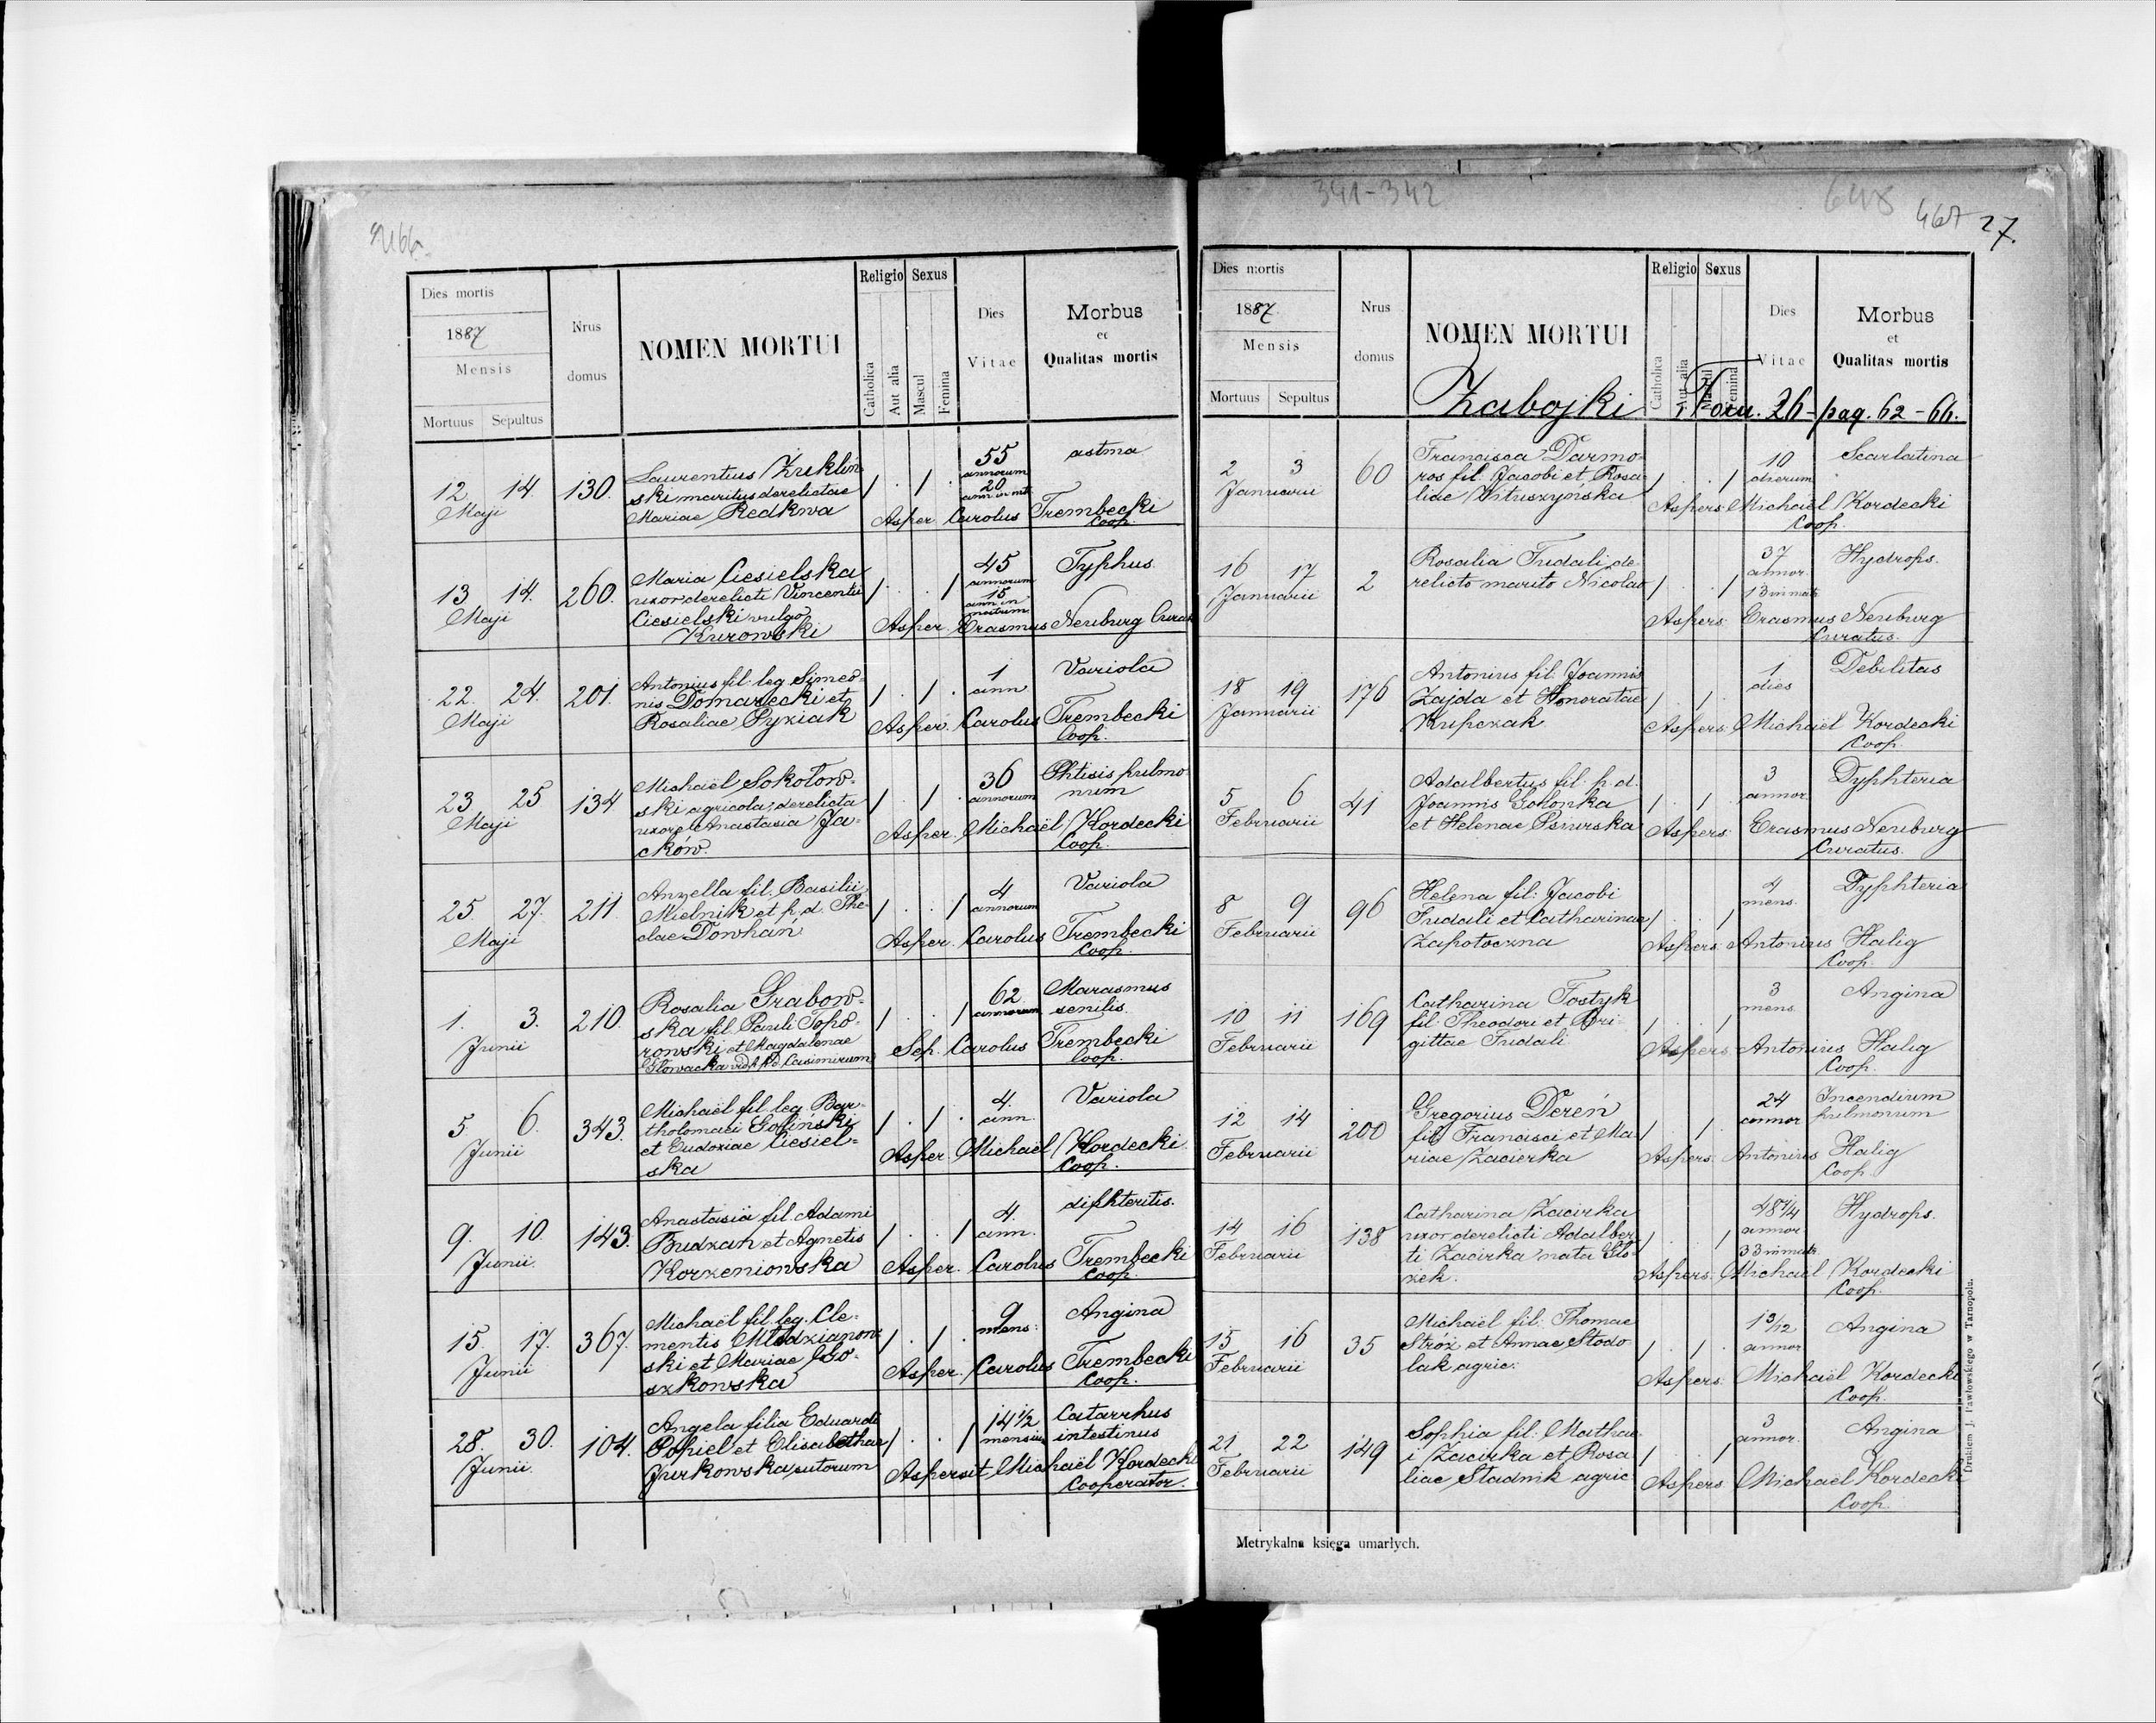 466.
Dies mortis
1887
Mensis
Mortuus Sepultus
Nrus
domus
NOMEN MORTUI
Religio
Catholica
Aut alia
Sexus
Mascul
Femina
Dies
Vitae
Morbus
et
Qualitas mortis
12 14. 130.
Maji
Laurentius Żukliń-
ski maritus derelictae
Mariae Redkwa
55
annorum
20
ann in mtr
astma
Asper. Carolus Trembecki
Coop.
13 14. 260.
Maji
Maria Ciesielska
uxor derelicti Vincentii
Ciesielski vulgo
Kurowski
45
annorum
15
ann in
matrim.
Typhus
Asper. Erasmus Neuburg Curat
22. 24. 201.
Maji
Antonius fil: leg Simeo-
nis Domarecki et
Rosaliae Pyziak
1
ann
Variola
Asper. Carolus Trembecki
Coop.
23 25 134
Maji
Michaël Sokołow-
ski agricola, derelicta
uxore Anastasia Ja-
cków.
36
annorum
Phtisis pulmo
num
Asper. Michaël Kordecki
Coop.
25. 27. 211.
Maji
Anzella fil. Basilii
Mielnik et p. d. The-
clae Dowhań
4
annorum
Variola
Asper. Carolus Trembecki
Coop.
1. 3. 210.
Junii
Rosalia Grabow-
ska fil. Pauli Topo-
rowski et Magdalenae
Głowacka vid. p. d. Casimirum
62.
annorum
Marasmus
senilis.
Sep. Carolus Trembecki
Coop.
5 6. 343.
Junii
Michaël fil. leg. Bar-
tholomaei Goliński
et Eudoxiae Ciesiel-
ska
4.
ann.
Variola
Asper. Michaël Kordecki
Coop.
9. 10. 143.
Junii.
Anastasia fil. Adami
Budzan et Agnetis
Korzeniowska
4.
ann.
difhteritis.
Asper. Carolus Trembecki
Coop.
15. 17. 367.
Junii
Michaël fil. leg. Cle-
mentis Młodzianow-
ski et Mariae
szkowska
9
mens:
Angina
Asper. Carolus Trembecki
Coop.
28. 30. 104.
Junii.
Angela filia Eduardi
Popiel et Elisabethae
Jurkowska sutorum
14 1/2
mensium
Catarrhus
intestinus
Aspersit Michaël Kordecki
Cooperator.
341-342
648
467
27.
Dies mortis
1887
Mensis
Mortuus Sepultus
Nrus
domus
NOMEN MORTUI
Religio
Catholica
Aut alia
Sexus
Mascul
Femina
Dies
Vitae
Morbus
et
Qualitas mortis
Zabojki Tom. 26 - pag. 62 - 66.
2 3 60
Januarii
Francisca Darmo-
ros fil. Jacobi et Rosa-
liae Wituszyńska
10
dierum
Scarlatina
Aspers. Michaël Kordecki
Coop.
16 17 2
Januarii
Rosalia Fudali de-
relicto marito Nicolao
37
annor.
13 in matr
Hydrops.
Aspers: Erasmus Neuburg
Curatus.
18 19 176
Januarii
Antonius fil: Joannis
Zajda et Honoratae
Kupczak
1
dies
Debilitas
Aspers: Michaël Kordecki
Coop.
5 6 41
Februarii
Adalbertus fil. p. d.
Joannis Gołonka
et Helenae Psiurska
3
annor.
Dyphteria
Aspers: Erasmus Neuburg
Curatus.
8 9 96
Februarii
Helena fil: Jacobi
Fudali et Catharinae
Zapotoczna
4
mens.
Dyphteria
Aspers: Antonius Halig
Coop.
10 11 169
Februarii
Catharina Tostyk
fil: Theodori et Bri-
gittae Fudali
3
mens
Angina
Aspers: Antonius Halig
Coop.
12 14 200
Februarii
Gregorius Dereń
fil: Francisci et Ma-
riae Zacierka
24
annor
Incendium
pulmonum
Aspers: Antonius Halig
Coop.
14 16 138
Februarii
Catharina Zacirka
uxor derelicti Adalber-
ti Zacirka nata Gło-
zek.
48 3/4
annor.
33 in matr
Hydrops.
Aspers: Michaël Kordecki
Coop.
15 16 35
Februarii
Michaël fil: Thomae
Stróz et Annae Stodo-
lak agric.
1 3/12
annor
Angina
Aspers: Michaël Kordecki
Coop.
21 22 149
Februarii
Sophia fil: Mathae-
i Zacirka et Rosa
liae Stadnik agric
3
annor.
Angina
Aspers Michaël Kordecki
Coop.
Metrykalna księga umarłych.
Drukiem J. Pawłowskiego w Tarnopolu.